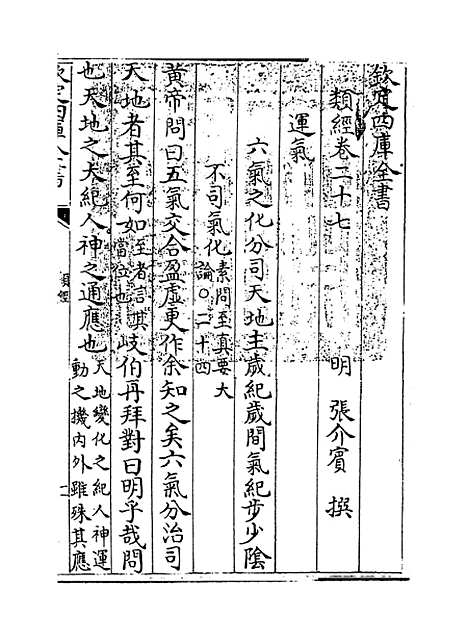 欽定四庫全書
類經卷二十七
明 張介賓 撰
運氣
六氣之化分司天地主歲紀歲間氣紀步少陰
不司氣化素問至真要大論○二十四
黃帝問曰五氣交合盈虛更作余知之矣六氣分治司
天地者其至何如至者言其當位也岐伯再拜對曰明乎哉問
也天地之大紀人神之通應也天地變化之紀人神運動之機內外雖殊其應
欽定四庫全書
類經
一